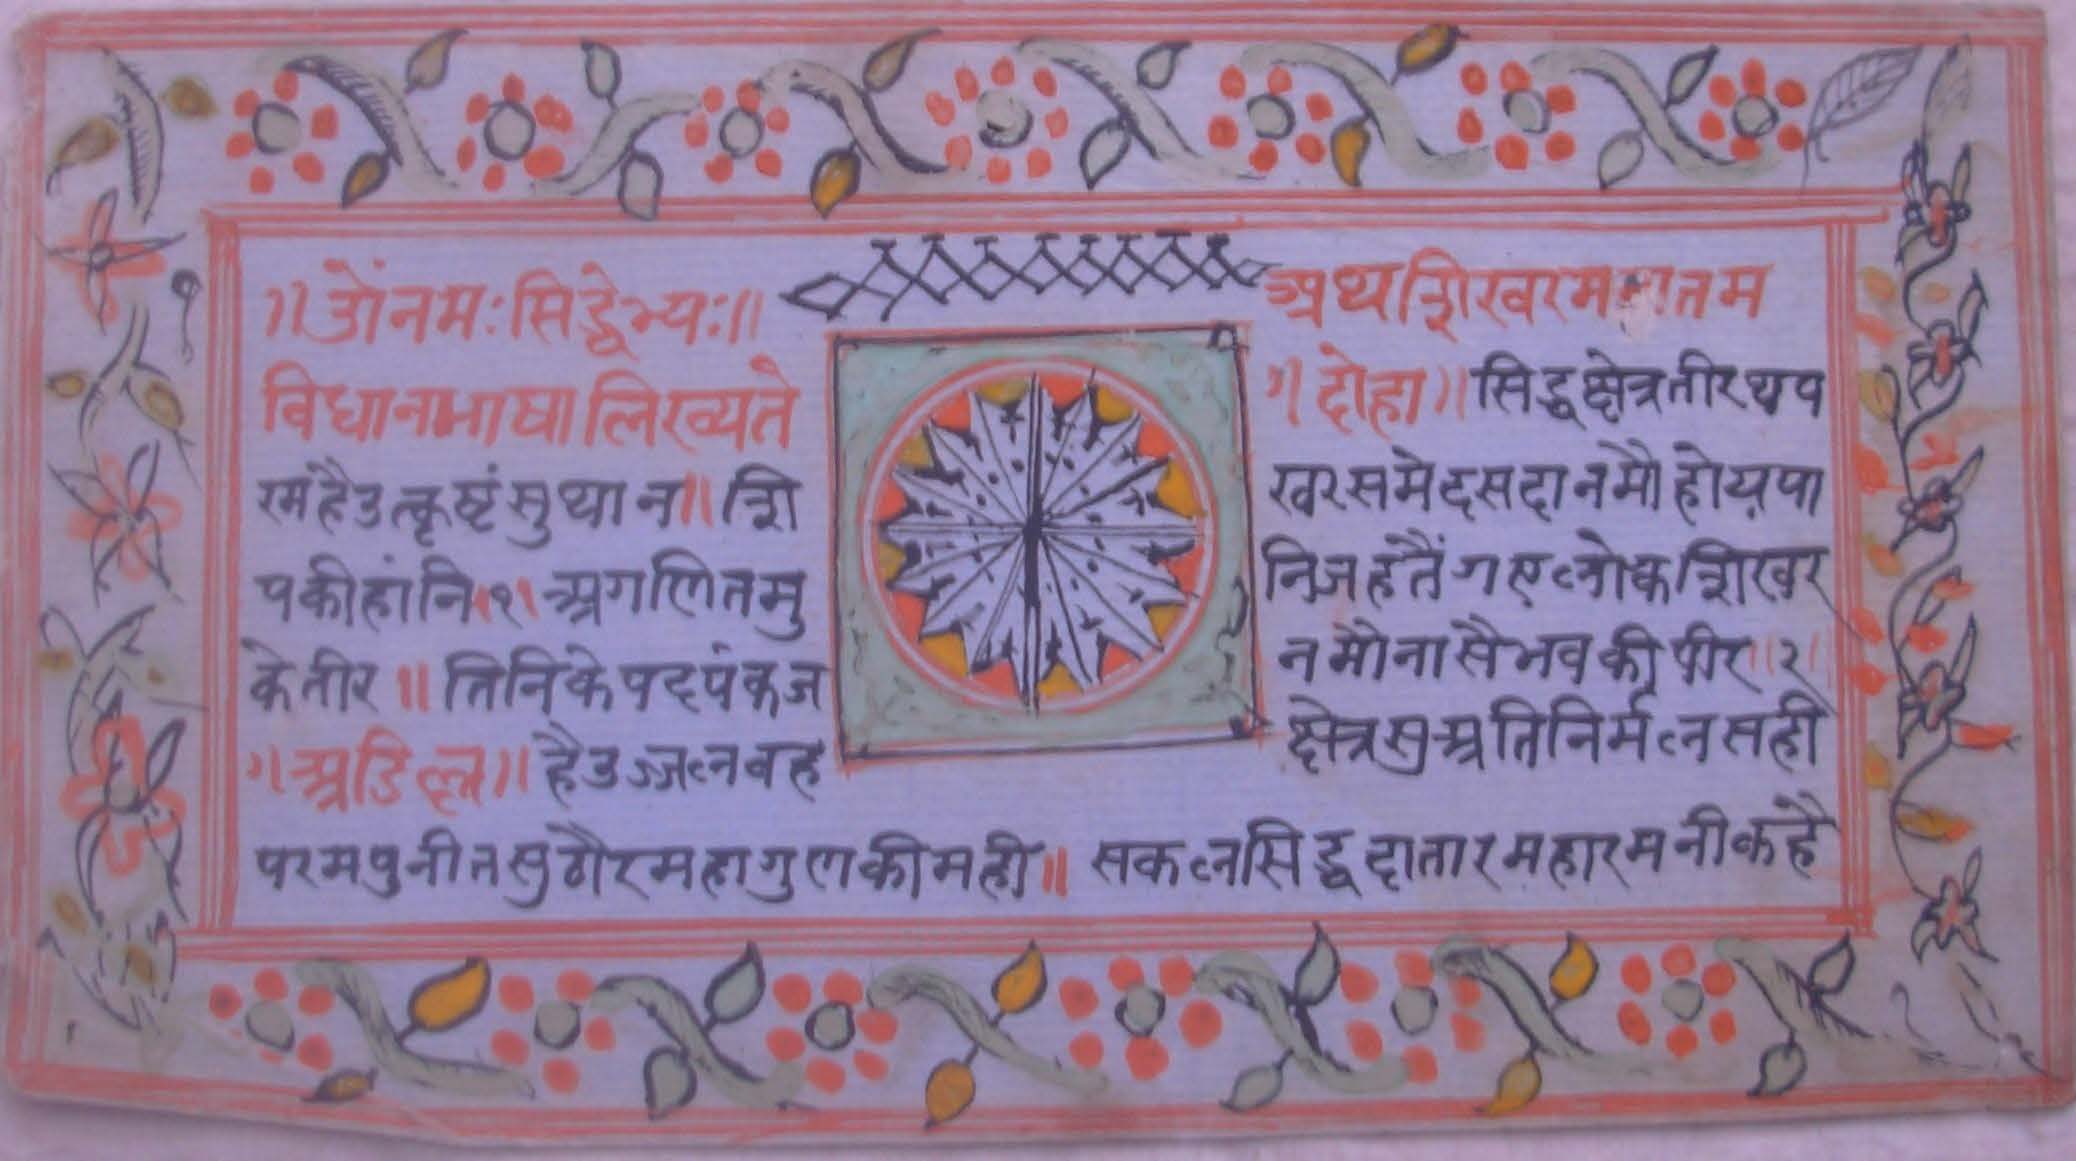 १
॥ओंनमःसिद्धेभ्यः॥ अथशिखरमहातम
विधानभाषालिख्यते ॥दोहा॥सिद्धक्षेत्रतीरथप
रमहैउत्कृष्टंसुथान॥शि खरसमेदसदानमौहोय़पा
पकीहांनि॥१॥अगणितमु निजहतैंगएलोकशिखर
केतीर॥तिनिकेपदपंकज नमौनासैभवकीपीर॥२॥
॥अडिल्ल॥हैउज्जलवह क्षेत्रसुअतिनिर्मलसही
परमपुनीतसुठौरमहागुणकीमही॥ सकलसिद्धदातारमहारमनीकहै